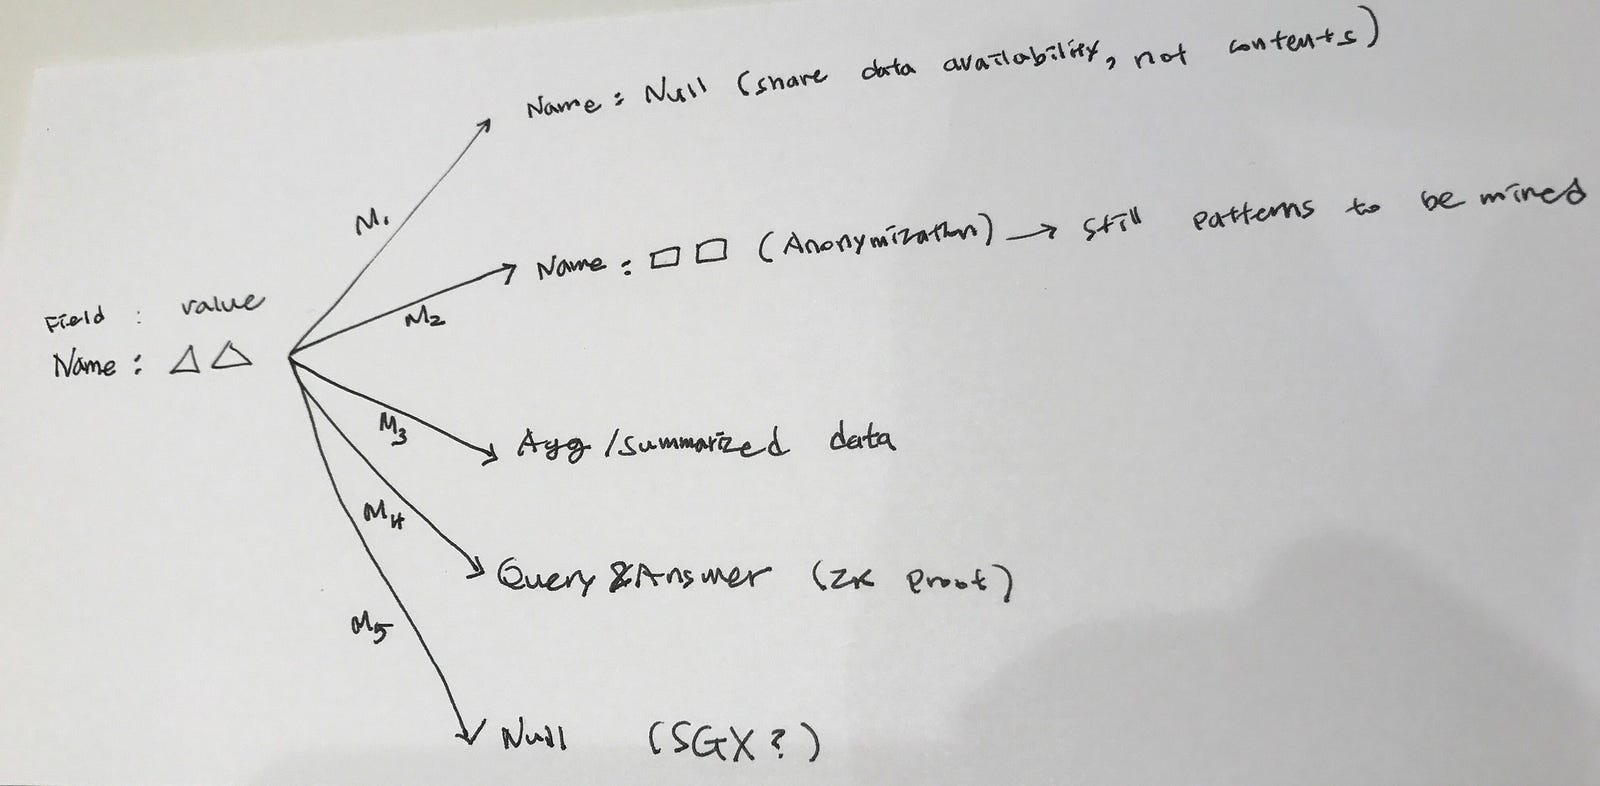 Name : Null (share data availability, not contents)
M1
Name : □ □ (Anonymization) → still patterns to be mined
M2
Field : value
Name : △ △
M3
Agg /summarized data
M4
Query & Answer (ZK Proof)
M5
Null (SGX ?)